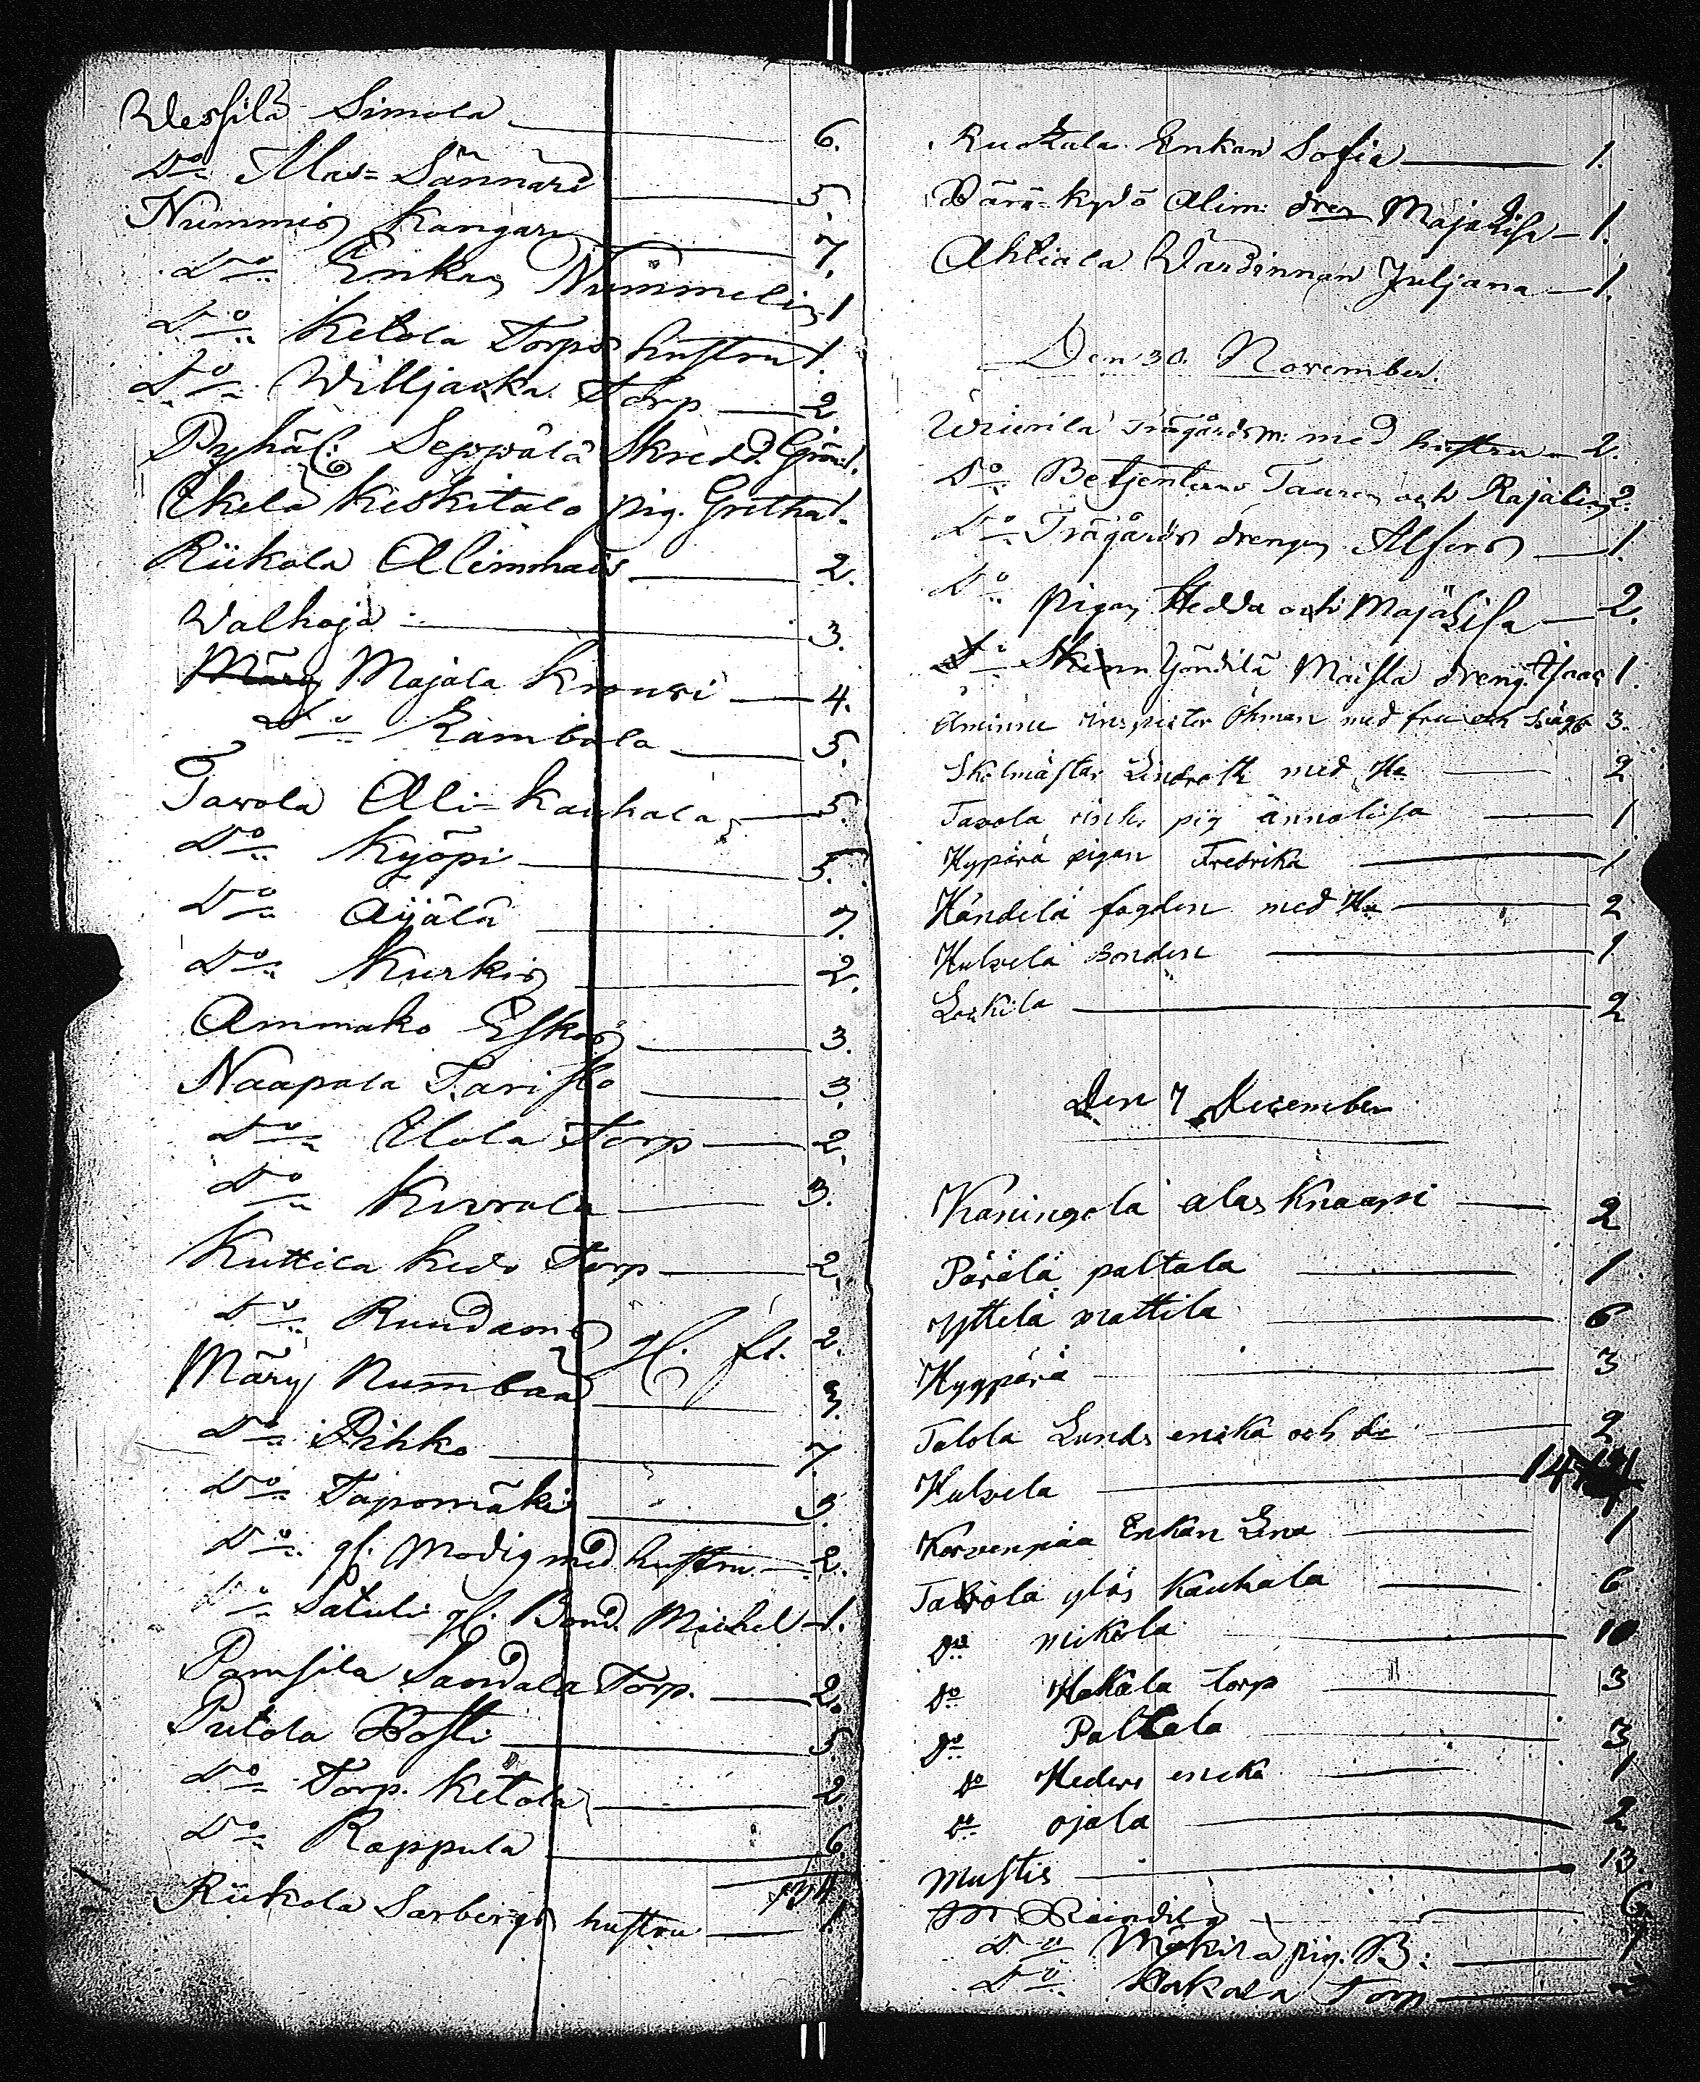 Wessilä Simola 6.
Do Alas= Sännäri 5.
Nummis Kangar 7.
Do Enkan Nummelin 1
Do Ketola Torps hustru 1.
Do Williacka Torp 2
Pyhäl: Seppälä Skredd. Grön 1.
Ekelä Keskitalo pig. Gretha 1.
Riikola Alimmais 2.
Walhoja 3.
Majala Krouvi 4.
Do Kambala 5.
Tavola Ali=Kauhala 5.
Do Kyöpi 5.
Do Äijälä 7.
Do Kurkis 2.
Ammako Eskos 3.
Naapala Taristo 3.
Do Elola Torp 2.
Do Kurrola 3.
Kuttila Kedo Torp 2.
Do Rundaong gl. 2.
Märy Numbää 3.
Do Pihko 7.
Do Tapomäki 3.
Do gl. Modig med hustru 2.
Do Satuli gl. Bond. Michel 1.
Pamsila Sandala Torp. 2.
Putola Bosti 5.
Do Torp. Ketola 2.
Do Rappula 6.
134
Riikola Sarbergs hustru 1
Ruskala Enkan Sofia 1.
Alim: dren MajaLisa 1.
Ahtiala Wardinnan Juljana 1.
Den 30. November.
Wiurila Trägårdsm: med hustru 2.
Do Betjenterne Tauren och Rajalin 2.
Do Trägårds drengen Alfors 1
Do pigan Hedda och MajaLisa 2.
Do Yöndilä Maisla dreng Isaac 1.
Åminne inspector Öhman med fru och 3.
Skolmästar Lindroth med Ha 2
Tavola pig annalisa 1
Hypärä pigan Fredrika 1
Händelä fogden med Ha 2
Hulvela bonden 1
Laskila 2
Den 7 December
Kaningola alas Knaapi 2
Pärälä paltala 1
yttelä mattila 6
Hyppärä 3
Talola Lunds enka och dr 2
Hulvela 14
Korvenpää Enkan Lena 1
Tavola ylös Kauhala 6
do mikola 10
do Hakala torp 3
do Paltala 3
do Heders enka 1
do ojala 2
Mustis 13.
6
Do Mäkilä pig. B: 1
Do Hakala Torp